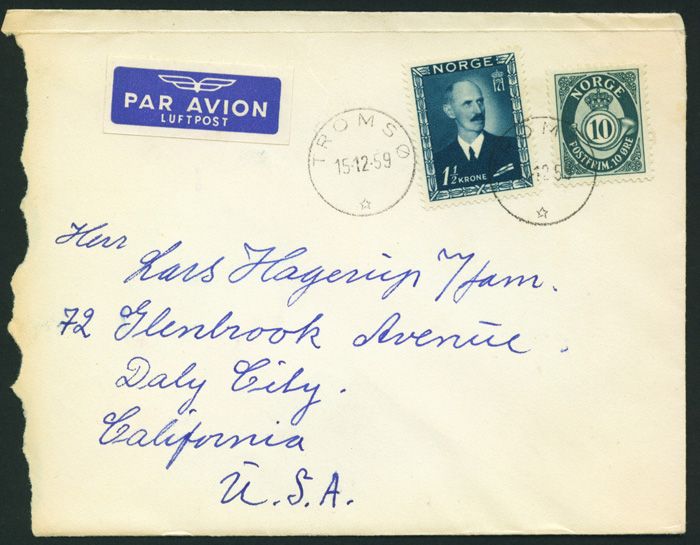 PAR AVION
LUFTPOST
TROMSØ
15-12-59
NORGE
1½ KRONE
NORGE
10
POSTFRIM. 10 ØRE
OM
12.59
Herr
Lars Hagerup m/fam.
72 Glenbrook Avenue.
Daly City.
California
U.S.A.